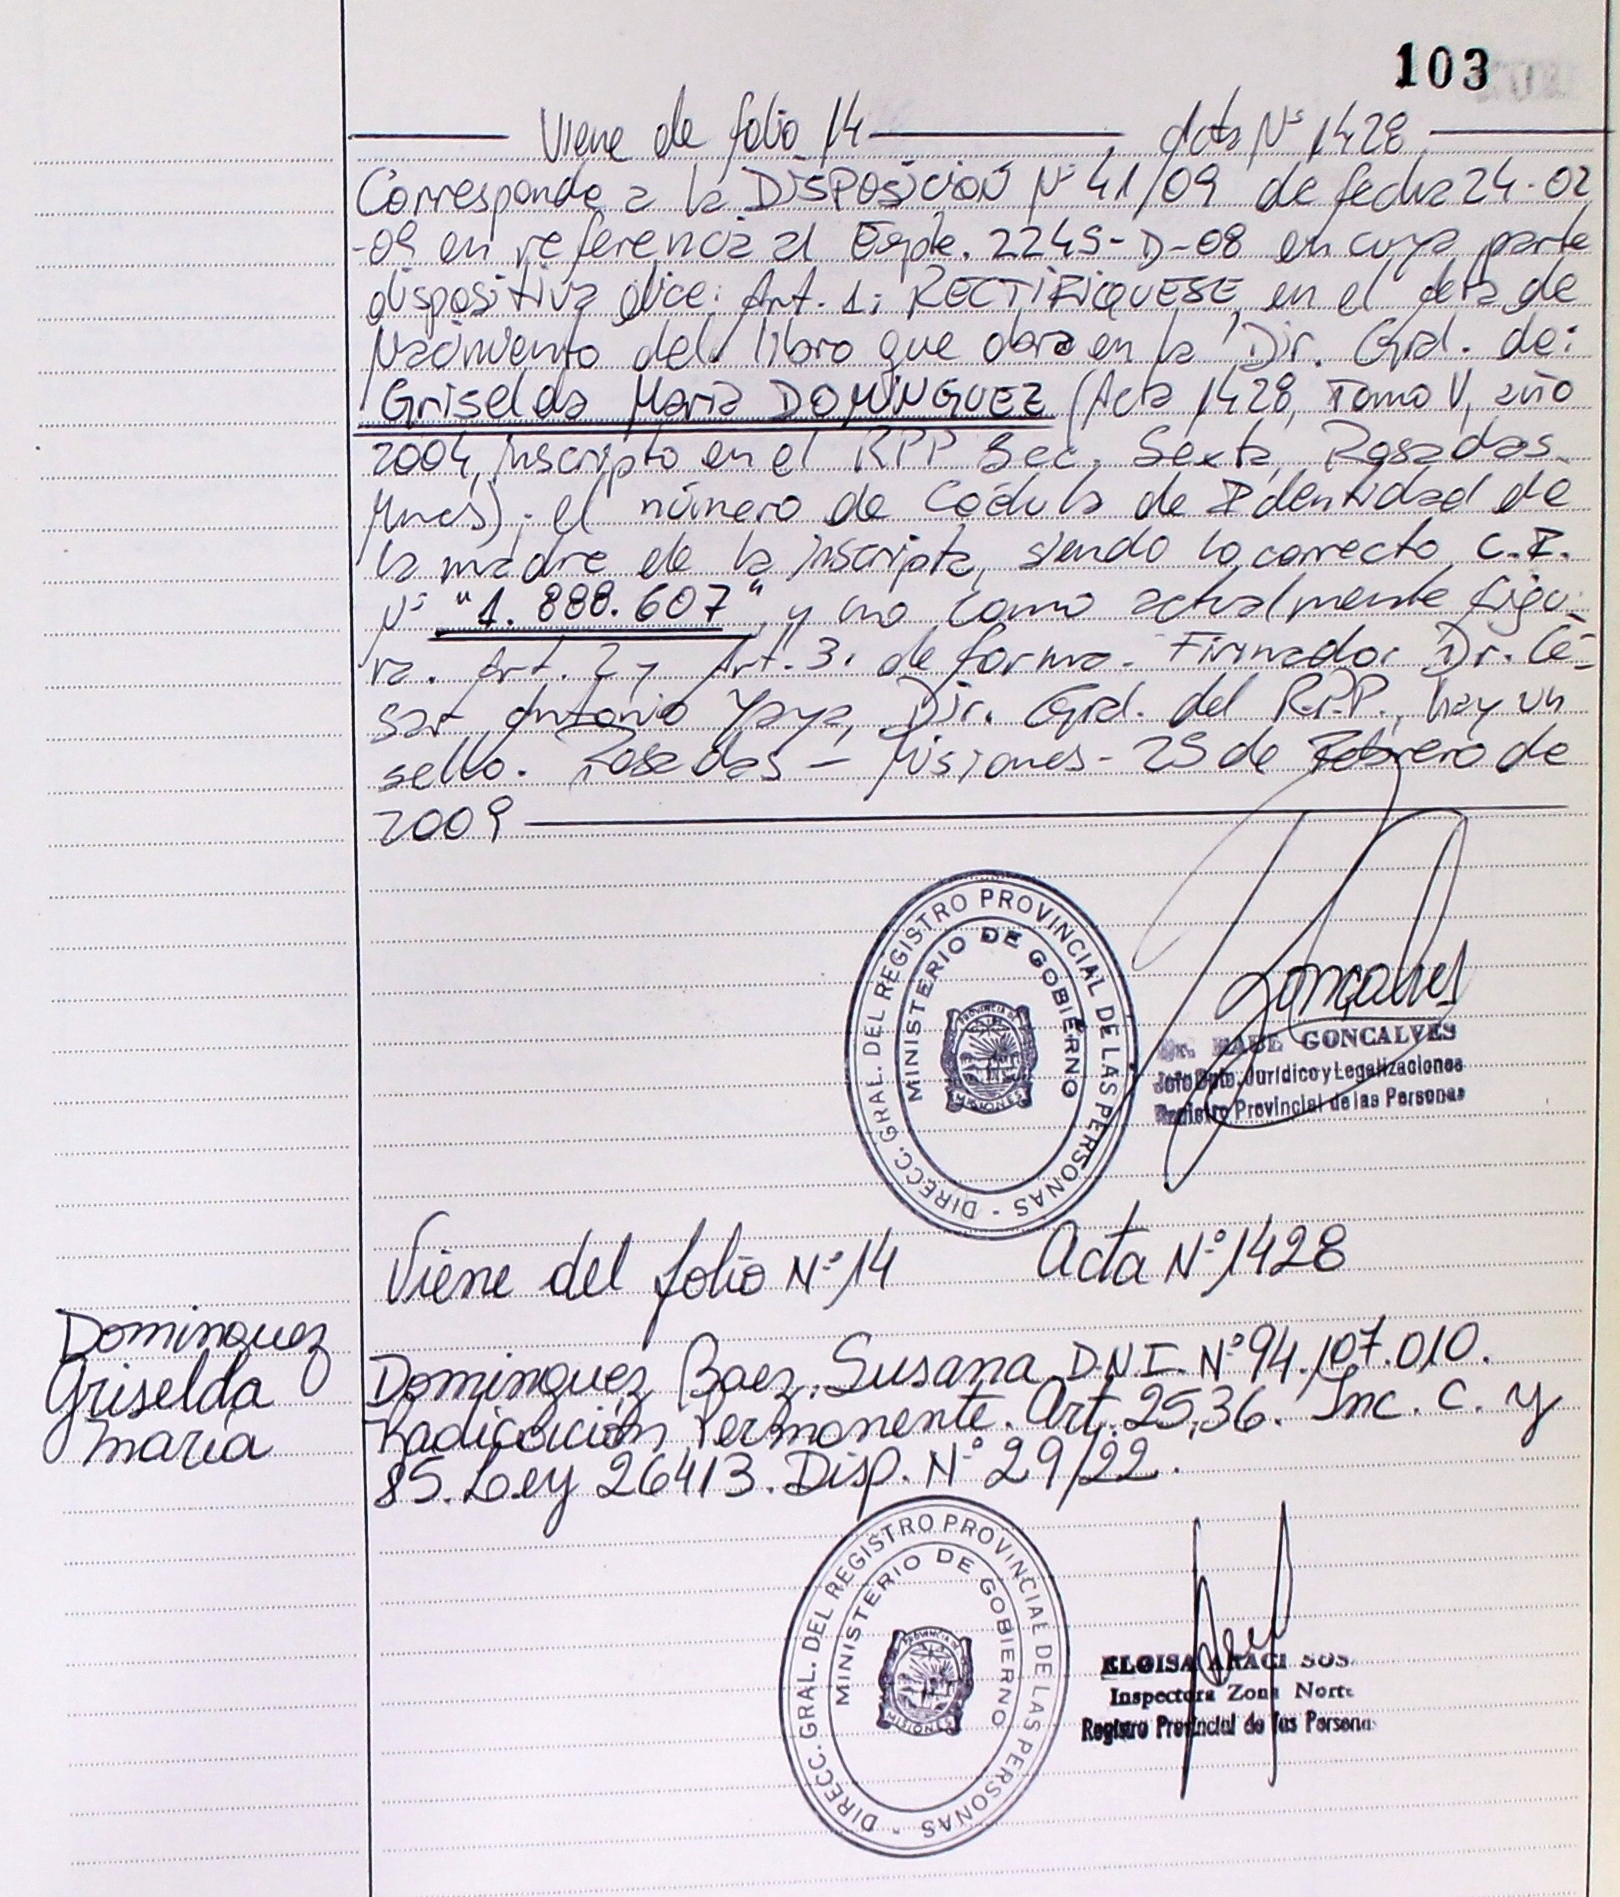 103
Viene de folio 14 Acta Nº 1428
Corresponde a la DISPOSICION Nº 41/09 de fecha 24-02
-09 en referencia al Expte. 2245-D-08 en cuya parte
dispositiva dice: Art. 1: RECTIFIQUESE, en el acta de
Nacimiento del libro que obra en la Dir. Gral. de:
Griselda Maria DOMINGUEZ (Acta 1428, Tomo V, año
2004, inscripto en el RPP Sec. Sexta, Posadas
Mnes); el número de Cédula de Identidad de
la madre de la inscripta, siendo lo correcto C.I.
Nº "1.888.607" y no como actualmente figu-
ra. Art. 2 y Art. 3. de forma. Firmado. Dr. Cé-
sar Antonio Yaya, Dir. Gral. del R.P.P., hay un
sello. Posadas - Misiones - 25 de Febrero de
2009
DIRECC. GRAL. DEL REGISTRO PROVINCIAL DE LAS PERSONAS -
MINISTERIO DE GOBIERNO
PROVINCIA DE
MISIONES
Goncalves
GONCALVES
Jefe Dpto. Jurídico y Legalizaciones
Registro Provincial de las Personas
Viene del folio Nº 14 Acta Nº 1428
Dominguez
Griselda
Maria
Dominguez Baez, Susana D.N.I. Nº 94.107.010.
Radicación Permanente. Art. 25,36. Inc. C. y
85. Ley 26413. Disp. Nº 29/22.
DIRECC. GRAL. DEL REGISTRO PROVINCIAL DE LAS PERSONAS -
MINISTERIO DE GOBIERNO
PROVINCIA DE
MISIONES
ELOISA ARACI SOS
Inspectora Zona Norte
Registro Provincial de las Personas